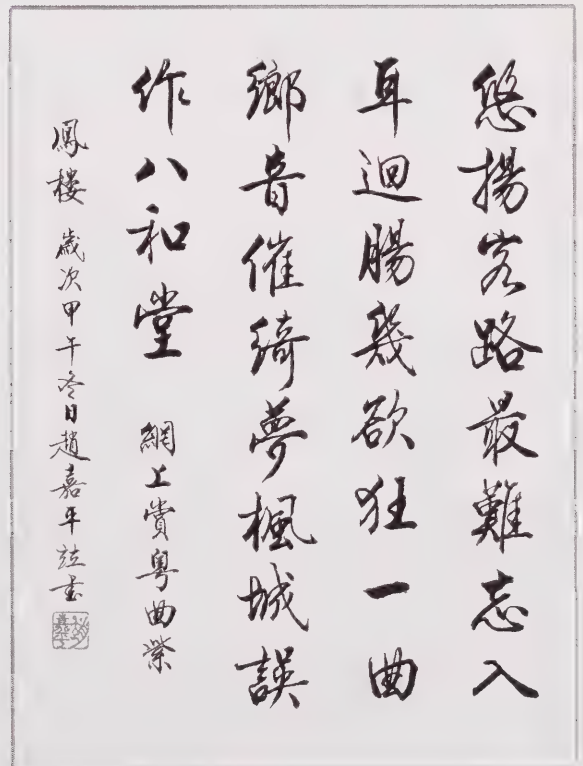 悠揚客路最難忘入
耳迴腸幾欲狂一曲
鄉音催綺夢楓城誤
作八和堂 網上賞粵曲紫
鳳樓 歲次甲午冬日趙嘉平竝書